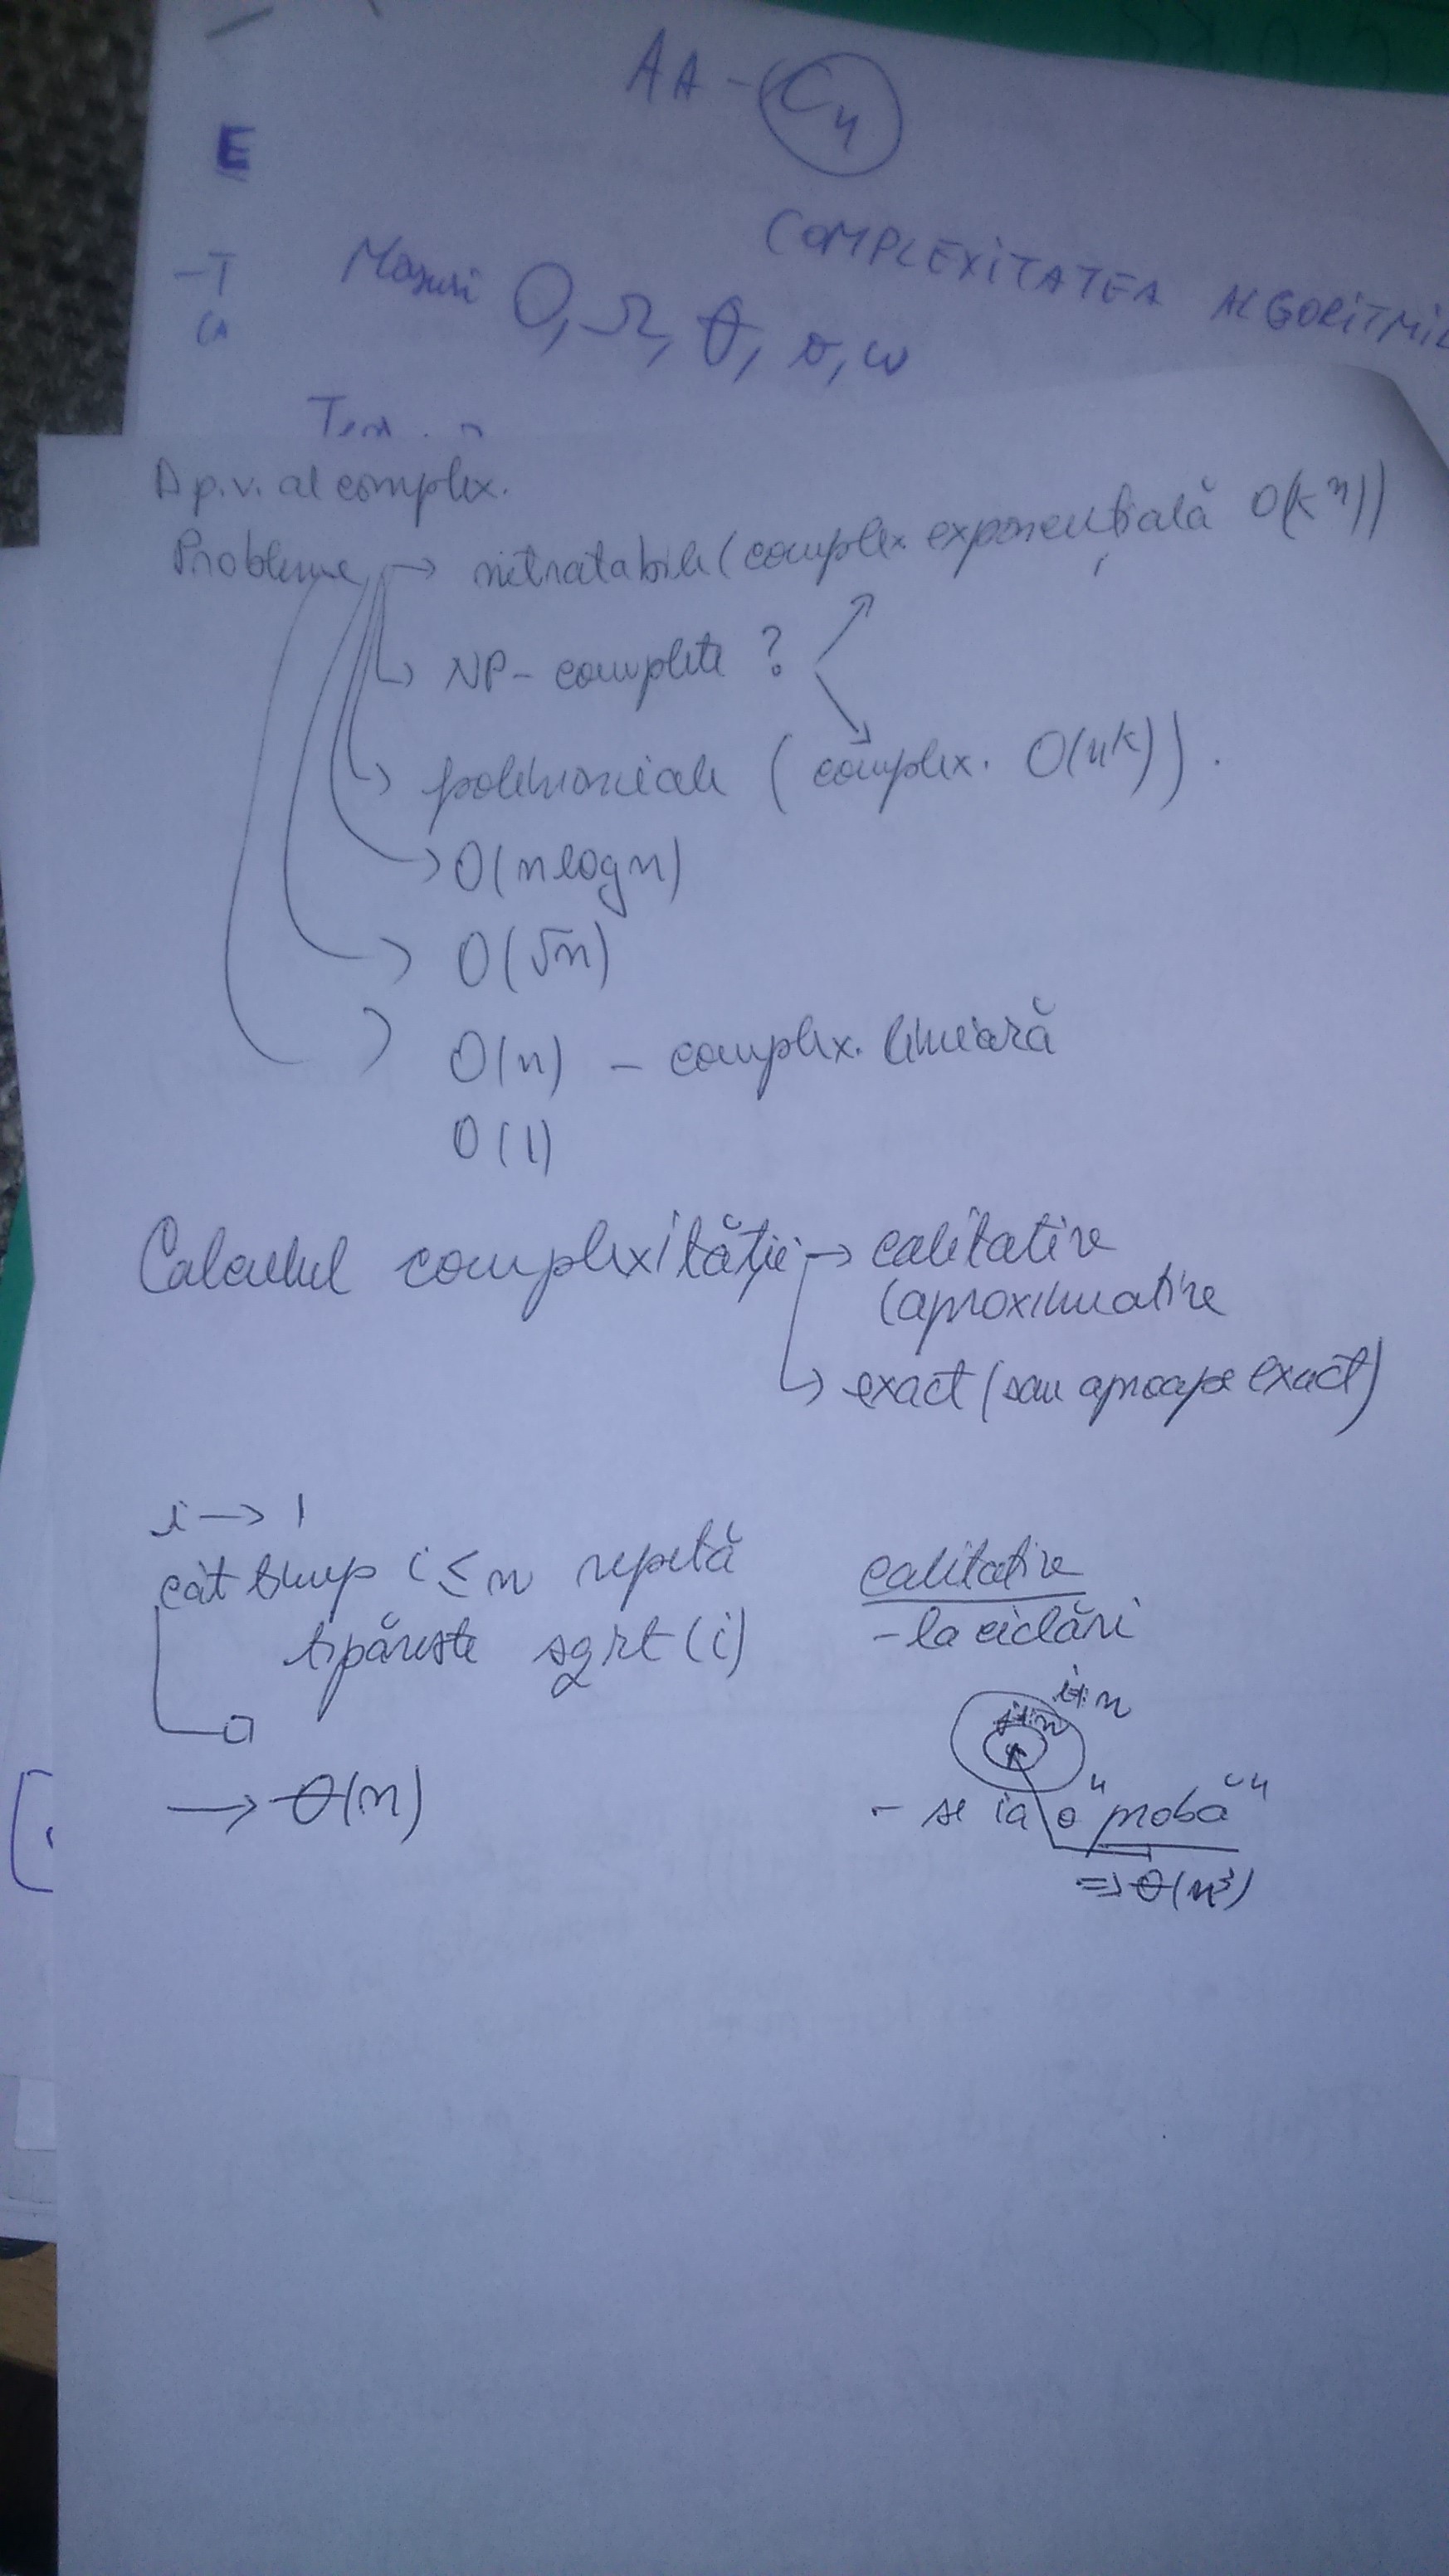 AA - C4
E
COMPLEXITATEA ALGORITMIL
- T
Masuri O, Ω, θ, o, ω
CA
D p.v. al complex.
Probleme → nitratabile (complex exponențială O(k^n))
→ NP - complete ?
→ polinomiale ( complex. O(n^k)).
→ O(n log n)
→ O(√n)
O(n) - complex. liniară
O(1)
Calculul complexității → calitative
(aproximative
→ exact (sau aproape exact)
i → 1
cât timp i ≤ n repetă
tipărește sqrt(i)
→ θ(n)
calitative
- la ciclări
i:n
j:n
- se ia o "probă"
=> θ(n³)